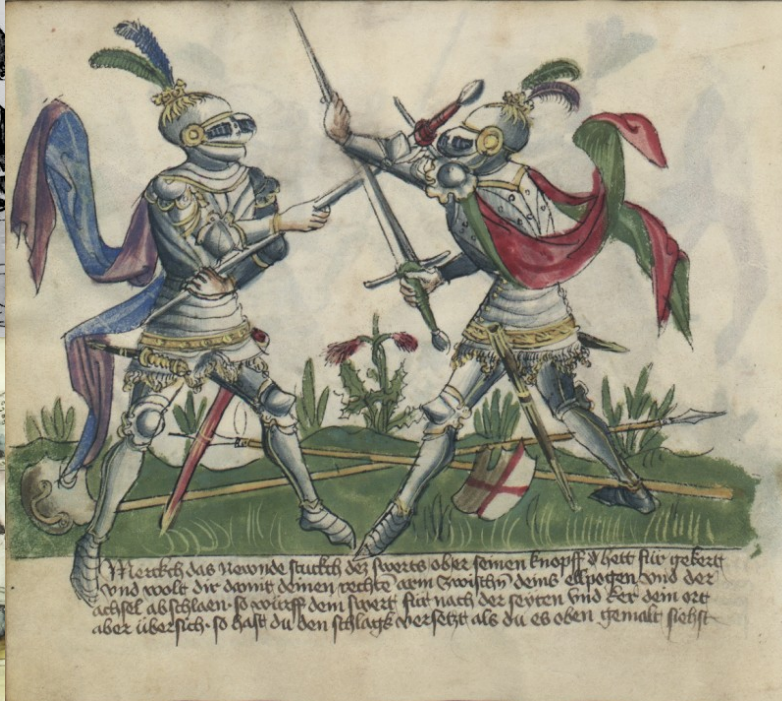 Merckch das Newnde stuckh des swerts ob er seinen knopff d hett für gekert
vnd wolt dir damit deinen rechtē arm zwischn deins ellpogen vnd der
achsel abschlaen · so würff dem swert für nach der seyten vnd ker dem ort
aber übersich · so hast du den schlagk versetzt als du es oben gemalt siehst